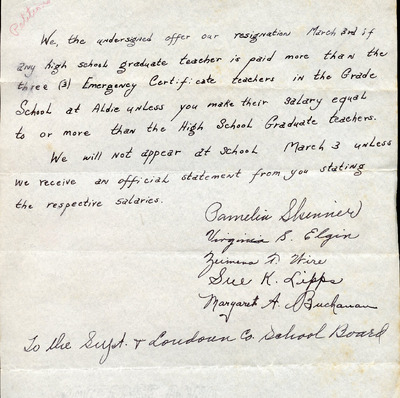 Petitions
We, the undersigned offer our resignation March 3rd if
any high school graduate teacher is paid more than the
three (3) Emergency Certificate teachers in the Grade
School at Aldie unless you make their salary equal
to or more than the High School Graduate teachers.
We will not appear at school March 3 unless
we receive an official statement from you stating
the respective salaries.
Pamelia Skinner
Virginia B. Elgin
F. Wire
Sue K. Lipps
Margaret A. Buchanan
To the Supt. & Loudoun Co. School Board